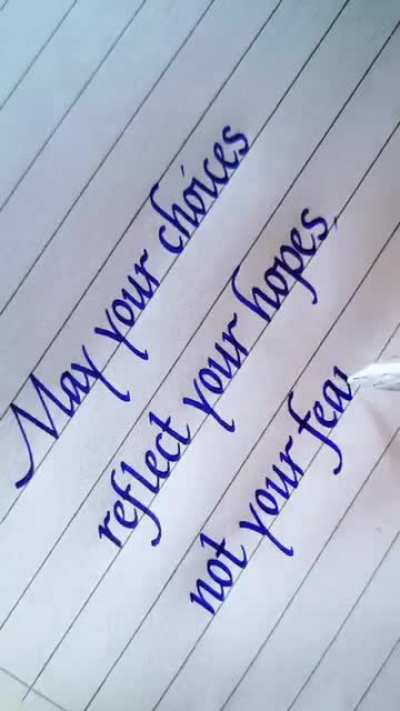 May your choices
reflect your hopes,
not your fear